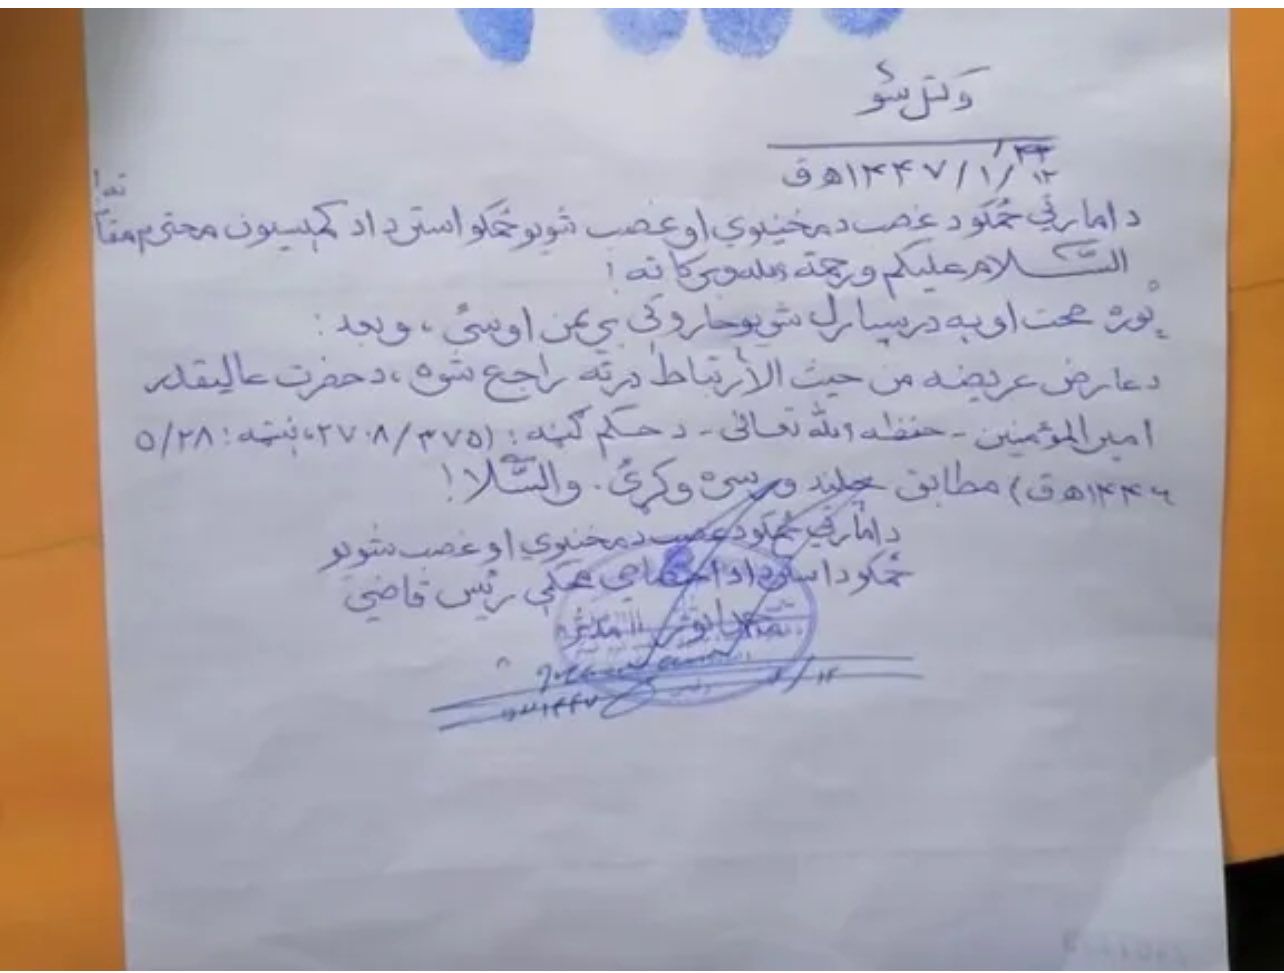 وکتل شو
۱۴۴۷/۱/۱۲ هـ ق
د امارتي ځمکو د غصب د مخنيوي او غصب شويو ځمکو استرداد کمېسيون محترم مقام ته!
السّلام عليکم ورحمة الله وبرکاته!
پوره صحت او په درسپارل شويو چارو کې بريمن اوسئ، وبعد:
د عارض عريضه من حيث الارتباط درته راجع شوه، د حضرت عاليقدر
اميرالمؤمنين - حفظه الله تعالی - د حکم ګڼه: (۲۷۰۸/۳۷۵، نېټه: ۵/۲۸
۱۴۴۶هـ ق) مطابق چلند ورسره وکړئ. والسّلام!
د امارتي ځمکو د غصب د مخنيوي او غصب شويو
ځمکو د استرداد اختصاصي محکمې رئيس قاضي
۱۴۴۷